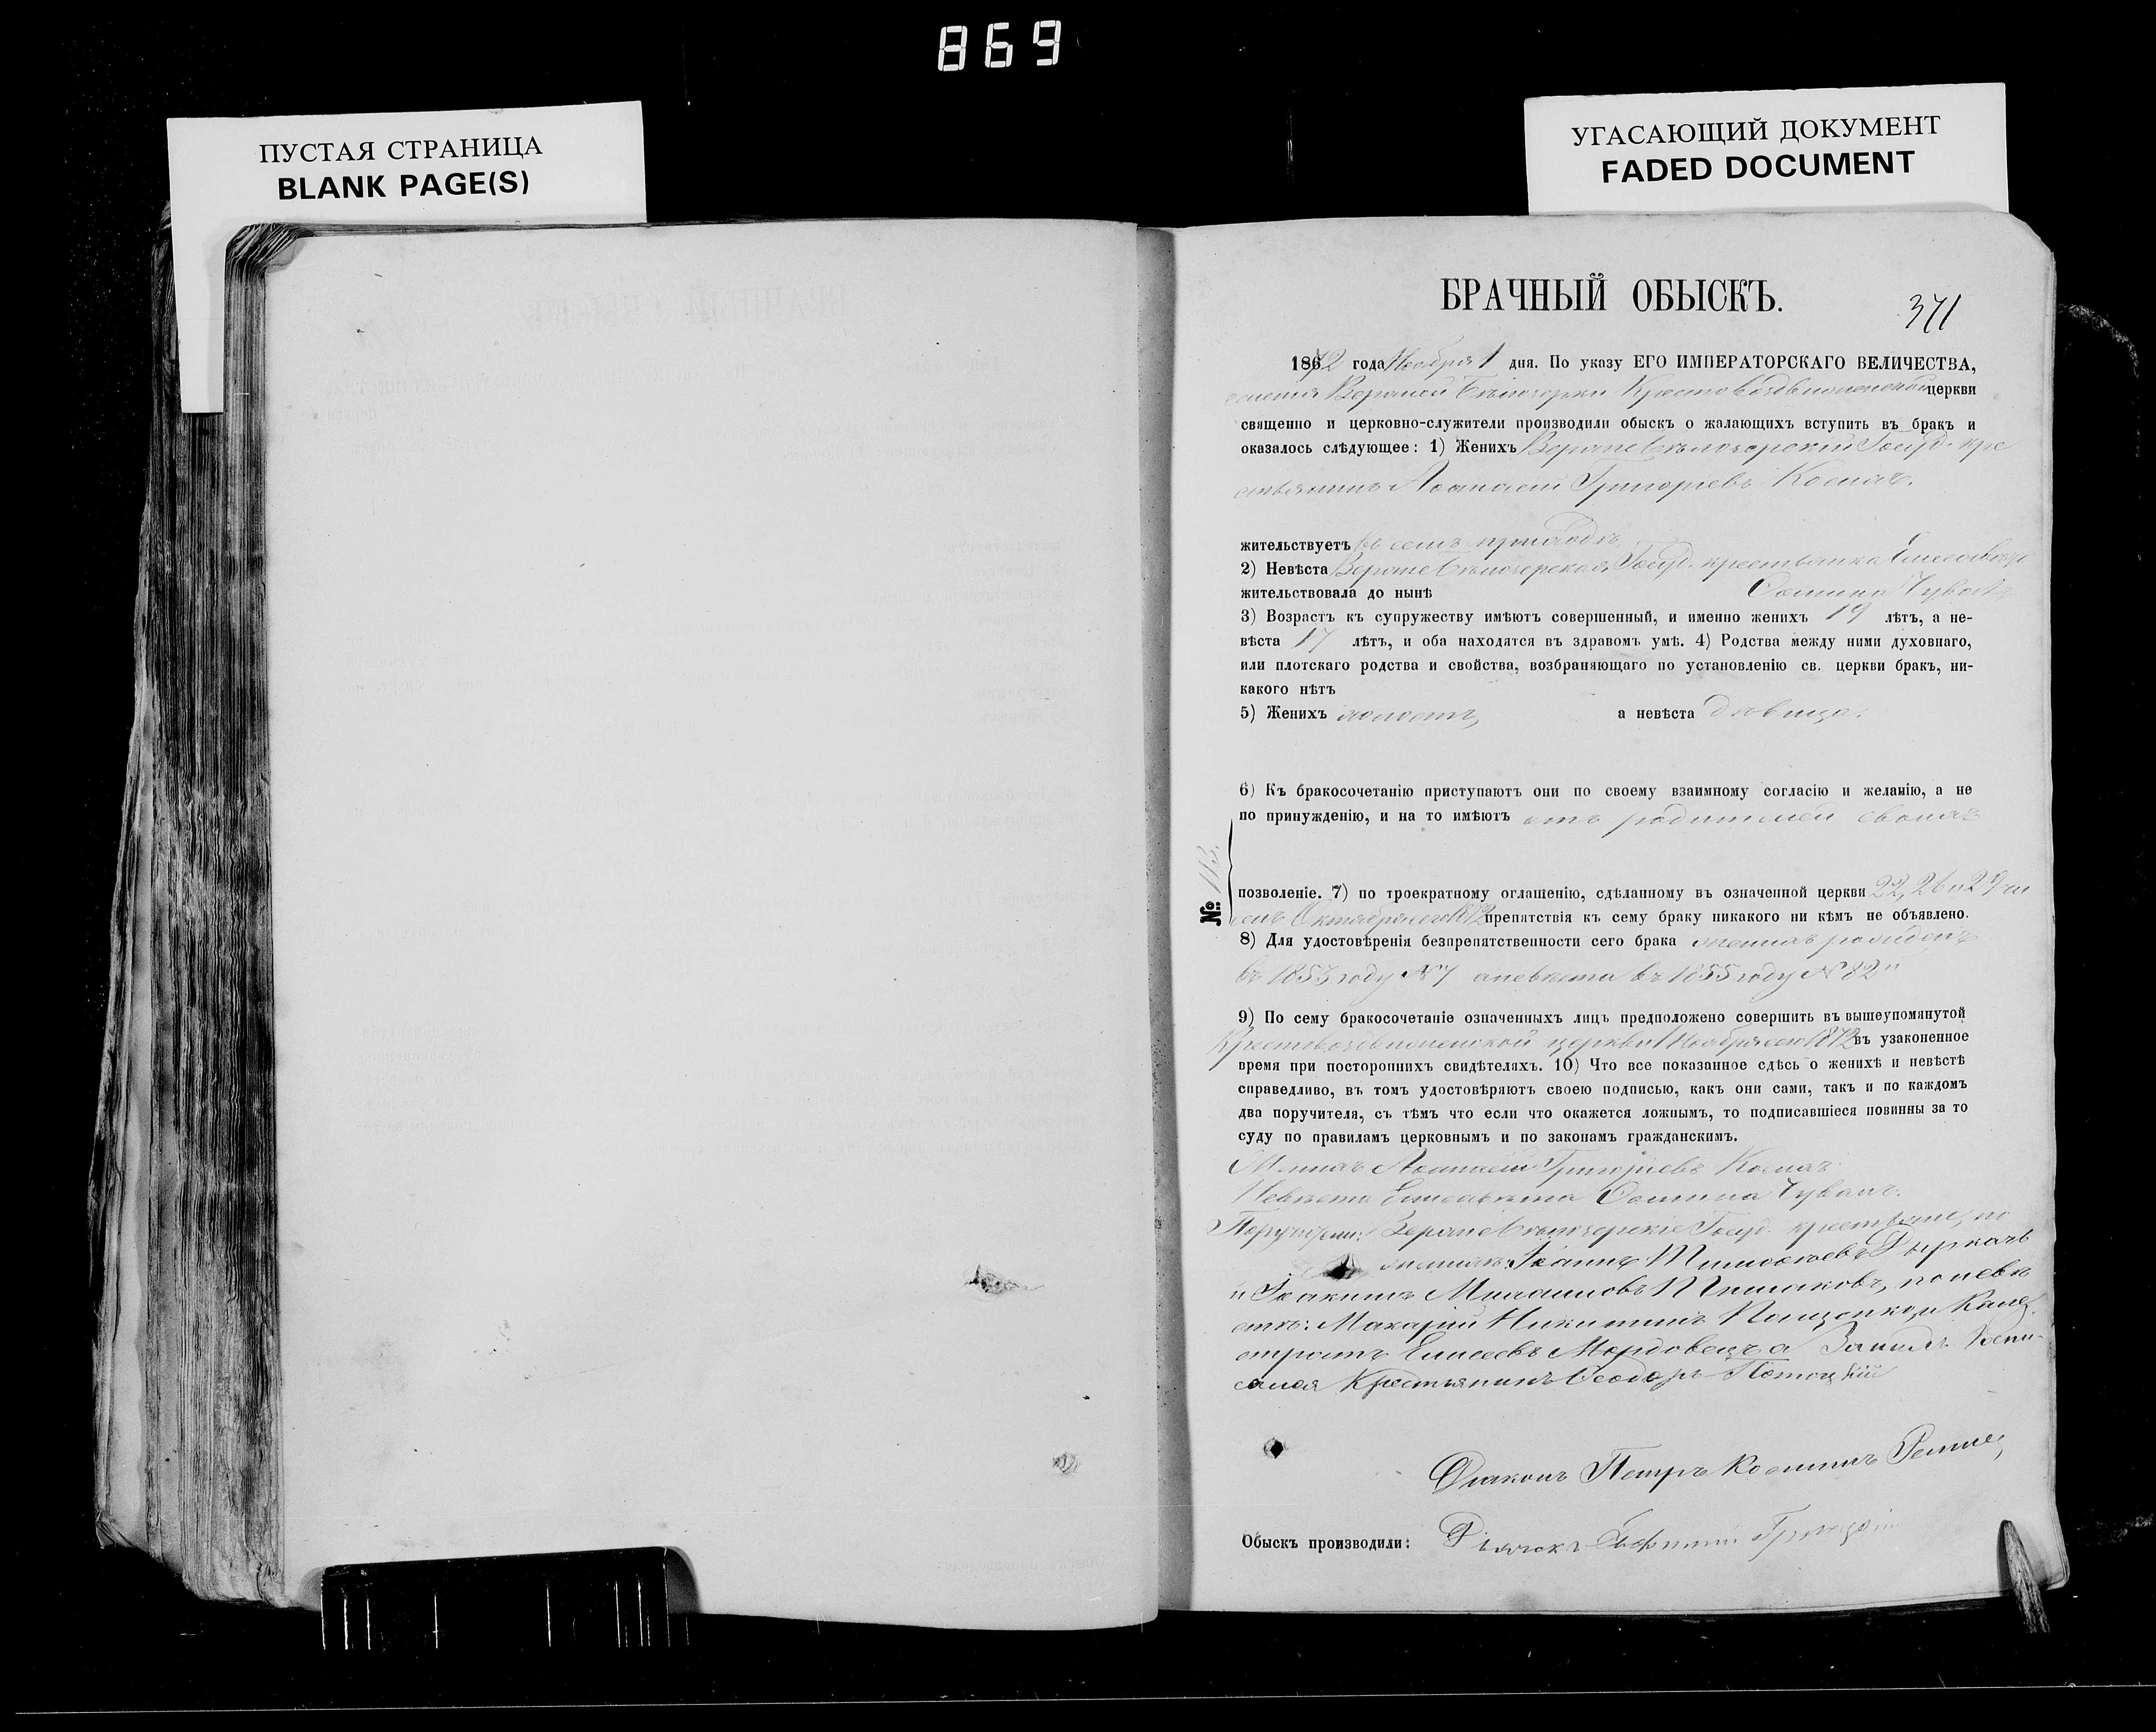 869
ПУСТАЯ СТРАНИЦА
BLANK PAGE(S)
УГАСАЮЩИЙ ДОКУМЕНТ
FADED DOCUMENT
БРАЧНЫЙ ОБЫСКЪ.
371
1872 года Ноября 1 дня. По указу ЕГО ИМПЕРАТОРСКАГО ВЕЛИЧЕСТВА,
церкви
священно и церковно-служители производили обыскъ о жалающихъ вступить въ бракъ и
оказалось слѣдующее: 1) Женихъ Госуд. кре
стьянинъ Аѳанасій Григоріевъ Космач.
жительствуетъ въ семъ приходѣ
2) Невѣста Госуд. крестьянка Елисавета
жительствовала до нынѣ Ѳомина Чуван
3) Возрастъ къ супружеству имѣютъ совершенный, и именно женихъ 19 лѣтъ, а не-
вѣста 17 лѣтъ, и оба находятся въ здравомъ умѣ. 4) Родства между ними духовнаго,
или плотскаго родства и свойства, возбраняющаго по установленію св. церкви бракъ, ни-
какого нѣтъ
5) Женихъ холостъ, а невѣста дѣвица.
6) Къ бракосочетанію приступаютъ они по своему взаимному согласію и желанію, а не
по принужденію, и на то имѣютъ отъ родителей своихъ
№ 113.
позволеніе. 7) по троекратному оглашенію, сдѣланному въ означенной церкви 22, 26 и 29 чи
селъ Октября сего 1872 препятствія къ сему браку никакого ни кѣмъ не объявлено.
8) Для удостовѣренія безпрепятственности сего брака женихъ рожденъ
въ 1853 году №7 а невѣста въ 1855 году № 82
9) По сему бракосочетаніе означенныхъ лицъ предположено совершить въ вышеупомянутой
Крестовоздвиженской церкви 1 Ноября сего 1872 въ узаконенное
время при постороннихъ свидѣтеляхъ. 10) Что все показанное сдѣсь о женихѣ и невѣстѣ
справедливо, въ томъ удостовѣряютъ своею подписью, какъ они сами, такъ и по каждомъ
два поручителя, съ тѣмъ что если что окажется ложнымъ, то подписавшіеся повинны за то
суду по правиламъ церковнымъ и по законамъ гражданскимъ.
Женихъ Аѳанасій Григоріевъ Космач
Невѣста Елисавета Ѳомина Чуван
Поручители: Госуд. крестьяне, по
женихѣ: Іоаннъ Тимоѳеевъ Дыркачъ
и Іоакимъ по невѣ
стѣ: Макарій Никитинъ и Кали
стратъ Елисеевъ Мордовецъ а
Крестьянинъ Ѳеодоръ Потоцкій
Діаконъ Петръ
Обыскъ производили: Дьячекъ